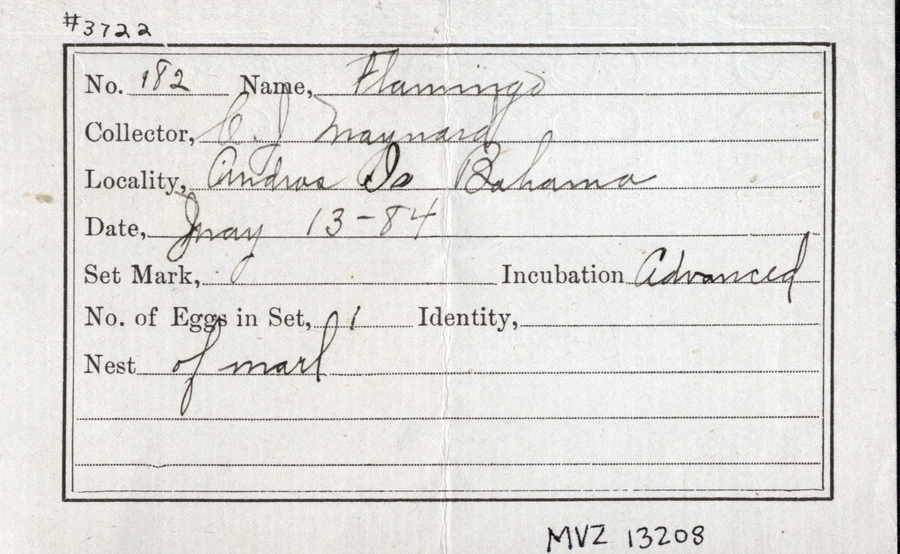 #3722
No. 182 Name, Flamingo
Collector, C. J Maynard
Locality, Andros Is Bahama
Date, May 13-84
Set Mark, Incubation Advanced
No. of Eggs in Set, 1 Identity,
Nest of marl
MVZ 13208